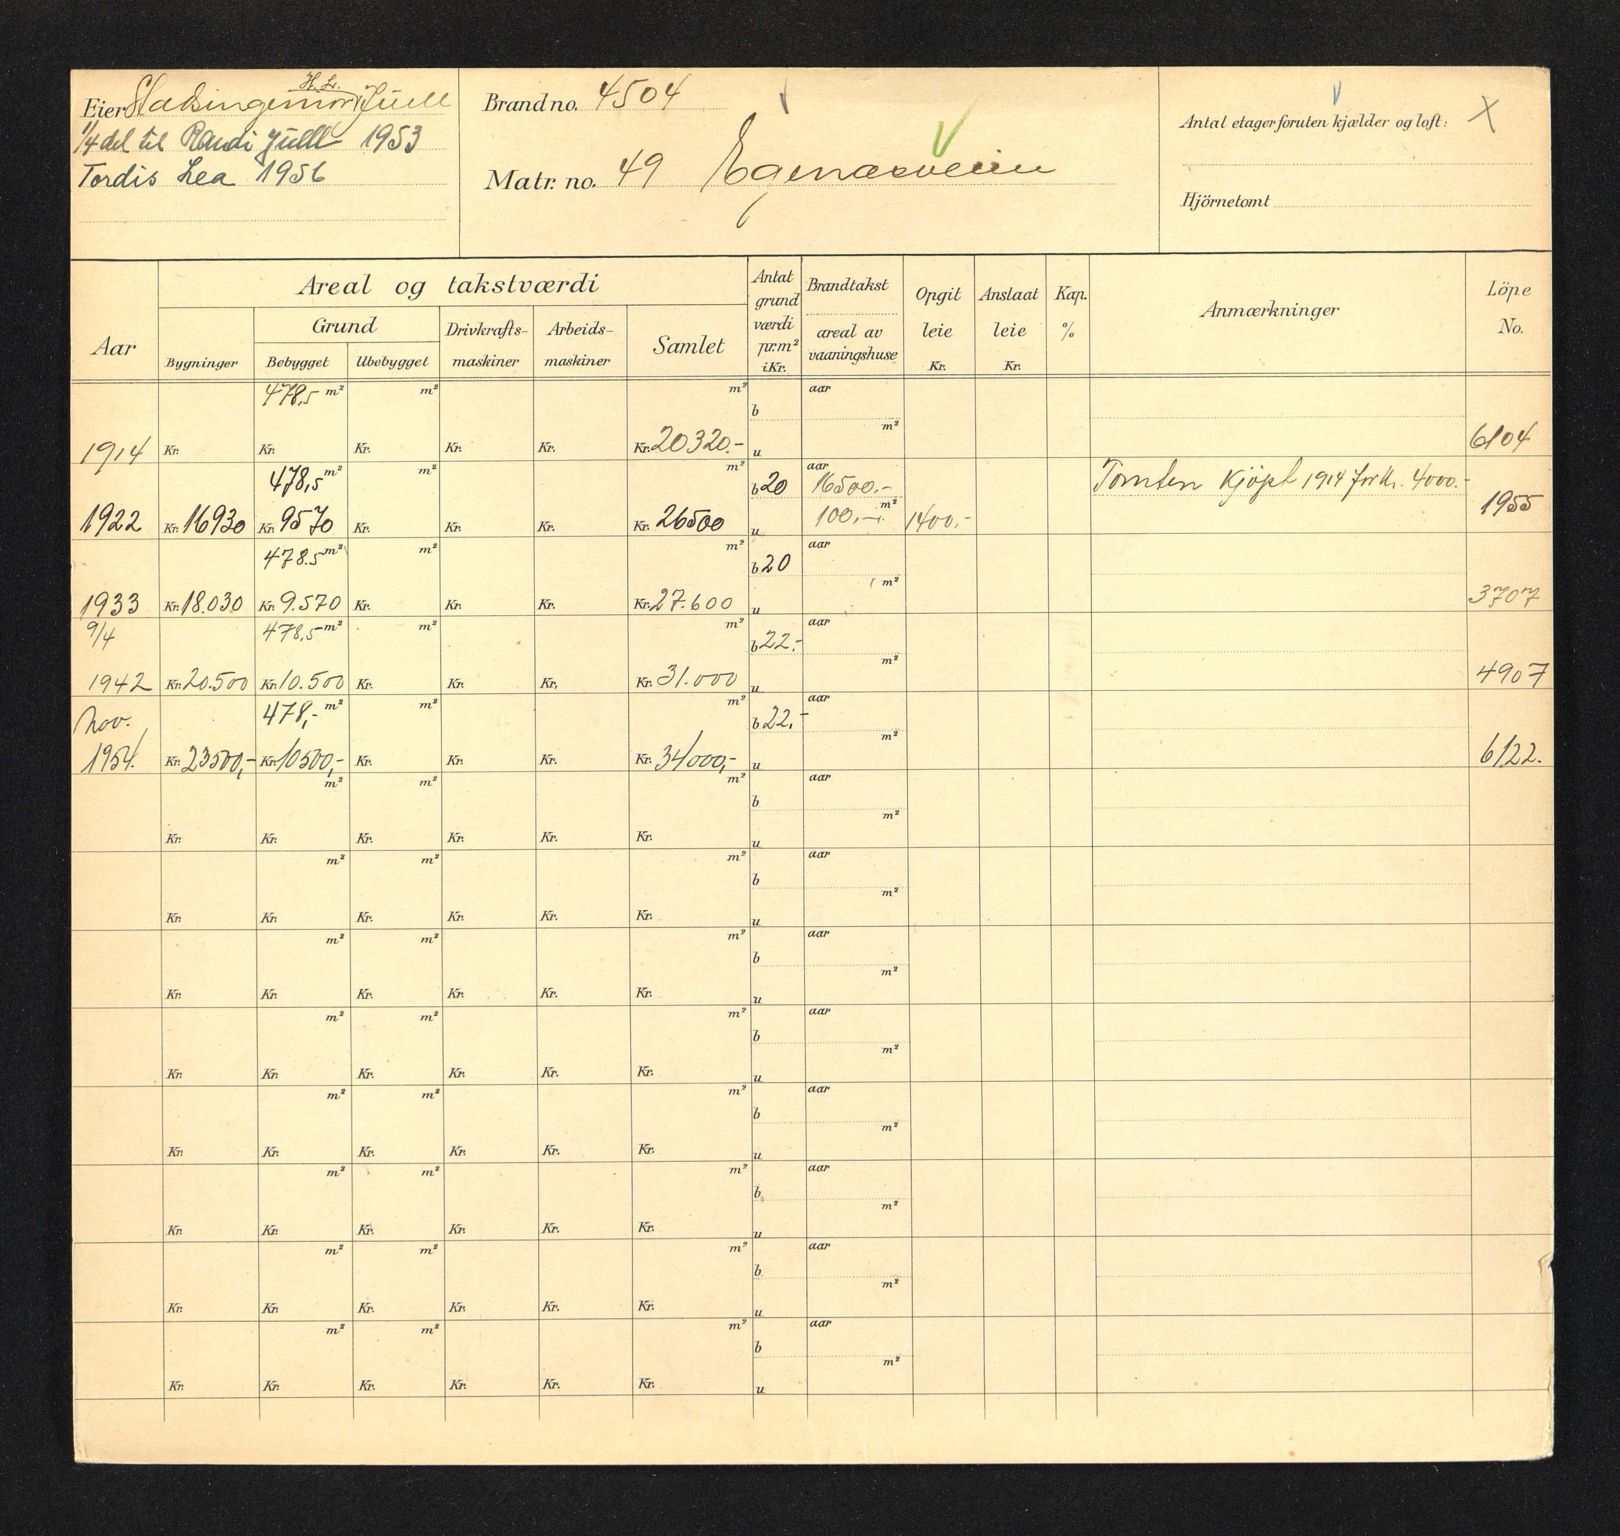 H. L.
Eier Stadsingeniør Juell
1/4 del til Randi Juell 1953
Tordis Lea 1956
Brandno. 4504
Matr. no. 49 Egenæsveien
Antal etager foruten kjælder og loft: X
Hjörnetomt
Aar
Areal og takstværdi
Bygninger
Grund
Bebygget
Ubebygget
Drivkrafts-
maskiner
Arbeids-
maskiner
Samlet
Antat
grund
værdi
pr.m²
i Kr.
Brandtakst
areal av
vaaningshuse
Opgit
leie
Kr.
Anslaat
leie
Kr.
Kap.
%
Anmærkninger
Löpe
No.
478,5 m² m² m² b aar
m²
1914 Kr. Kr. Kr. Kr. Kr. Kr. 20320.- u 6104
478,5 m² m² m² b 20 aar 16500.- Tomten kjøpt 1914 for kr. 4000.-
1922 Kr. 16930 Kr. 9570 Kr. Kr. Kr. Kr. 26500 u 100,- m² 1400,- 1955
478.5 m² m² m² b 20 aar
m²
1933 Kr. 18.030 Kr. 9.570 Kr. Kr. Kr. Kr. 27.600 u 3707
9/4 478,5 m² m² m² b 22.- aar
m²
1942 Kr. 20.500 Kr. 10.500 Kr. Kr. Kr. Kr. 31.000 u 4907
Nov. 478,- m² m² m² b 22,- aar
m²
1954. Kr. 23500,- Kr. 10500,- Kr. Kr. Kr. Kr. 34000,- u 6122.
m² m² m² aar
b
m²
Kr. Kr. Kr. Kr. Kr. Kr. u
m² m² m² aar
b
m²
Kr. Kr. Kr. Kr. Kr. Kr. u
m² m² m² aar
b
m²
Kr. Kr. Kr. Kr. Kr. Kr. u
m² m² m² aar
b
m²
Kr. Kr. Kr. Kr. Kr. Kr. u
m² m² m² aar
b
m²
Kr. Kr. Kr. Kr. Kr. Kr. u
m² m² m² aar
b
m²
Kr. Kr. Kr. Kr. Kr. Kr. u
m² m² m² aar
b
m²
Kr. Kr. Kr. Kr. Kr. Kr. u
m² m² m² aar
b
m²
Kr. Kr. Kr. Kr. Kr. Kr. u